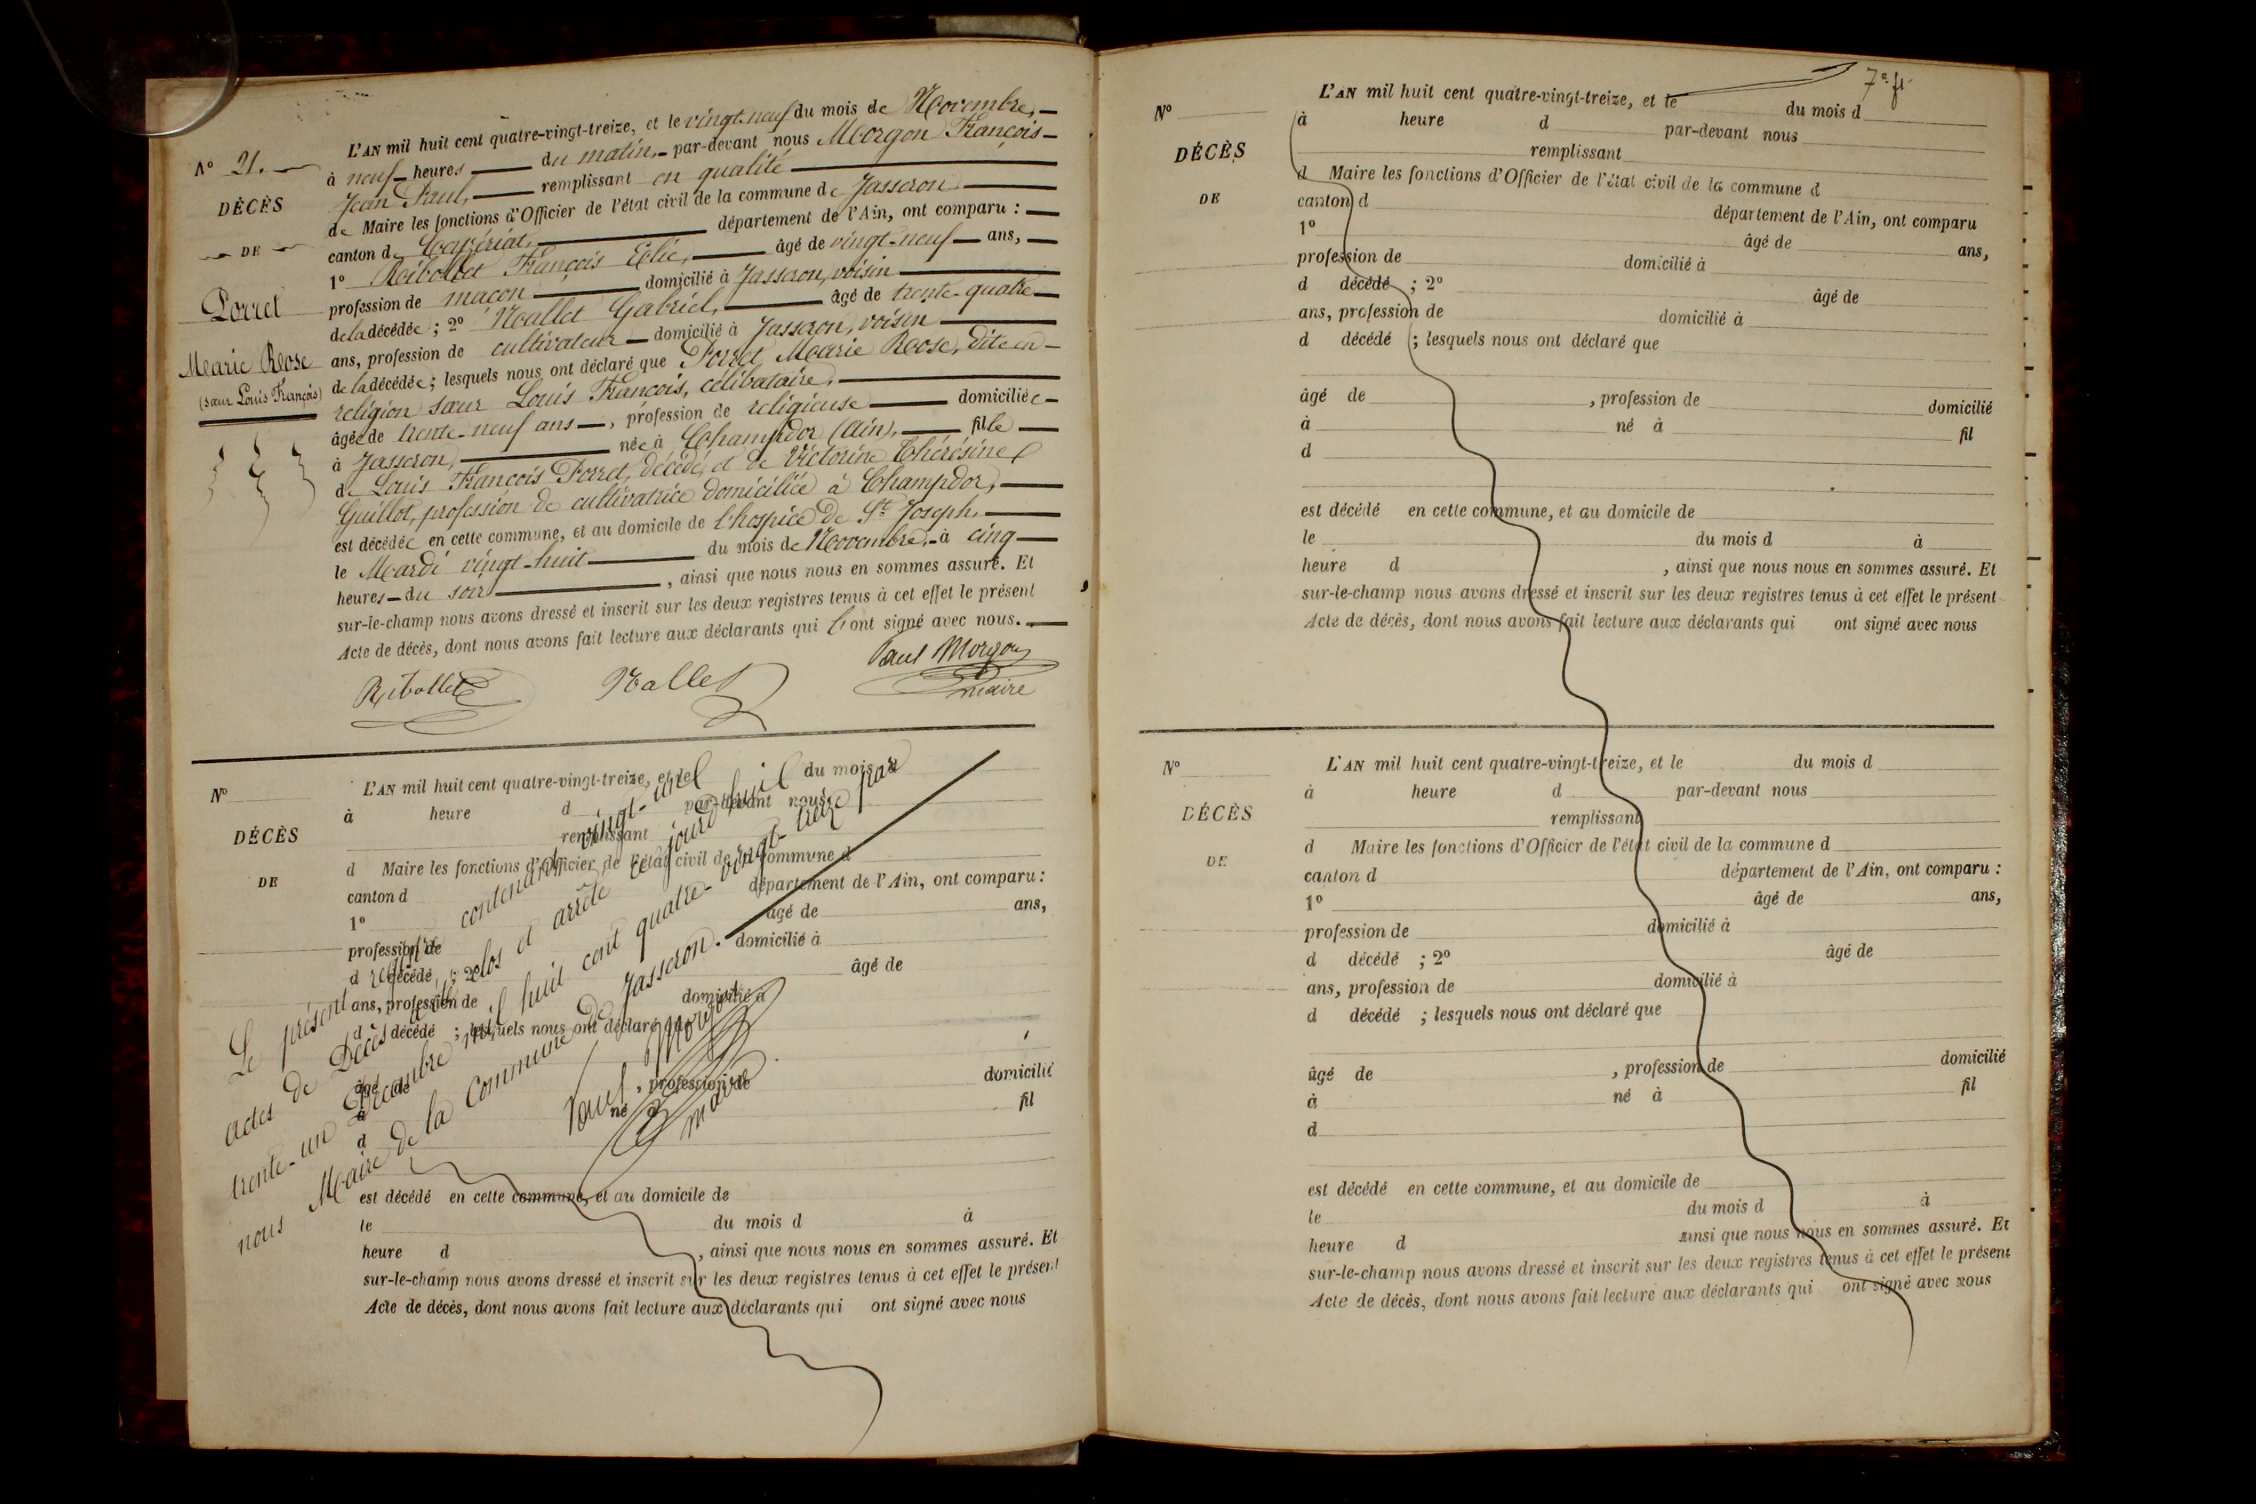 N° 21.
DÉCÈS
DE
Porret
Marie Rose
(sœur Louis François)
L'AN mil huit cent quatre-vingt-treize, et le vingt-neuf du mois de Novembre,
à neuf heures du matin, par-devant nous Morgon François
Jean Paul, remplissant en qualité
de Maire les fonctions d'Officier de l'état civil de la commune de Jasseron
canton de Ceyzériat, département de l'Ain, ont comparu :
1° Ribollet François Elie, âgé de vingt-neuf ans,
profession de maçon domicilié à Jasseron, voisin
de la décédée ; 2° Nallet Gabriel, âgé de trente-quatre
ans, profession de cultivateur domicilié à Jasseron, voisin
de la décédée ; lesquels nous ont déclaré que Porret Marie Rose, dite en
religion sœur Louis François, célibataire,
âgée de trente-neuf ans, profession de religieuse domiciliée
à Jasseron, née à Champdor (Ain), fille
de Louis François Porret, décédé, et de Victorine Thérésine
Guillot, profession de cultivatrice domiciliée à Champdor,
est décédée en cette commune, et au domicile de l'hospice de St Joseph,
le Mardi vingt-huit du mois de Novembre, à cinq
heures du soir, ainsi que nous nous en sommes assuré. Et
sur-le-champ nous avons dressé et inscrit sur les deux registres tenus à cet effet le présent
Acte de décès, dont nous avons fait lecture aux déclarants qui ont signé avec nous.
Ribollet Nallet Paul Morgon
maire
N°
DÉCÈS
DE
L'AN mil huit cent quatre-vingt-treize, et le du mois d
à heure d par-devant nous
remplissant
d Maire les fonctions d'Officier de l'état civil de la commune d
canton d département de l'Ain, ont comparu :
1° âgé de ans,
profession de domicilié à
d décédé ; 2° âgé de
ans, profession de domicilié à
d décédé ; lesquels nous ont déclaré que
âgé de , profession de domicilié
à né à fil
d
est décédé en cette commune, et au domicile de
le du mois d à
heure d , ainsi que nous nous en sommes assuré. Et
sur-le-champ nous avons dressé et inscrit sur les deux registres tenus à cet effet le présent
Acte de décès, dont nous avons fait lecture aux déclarants qui ont signé avec nous
Le présent registre contenant vingt-un
actes de Décès a été clos et arrêté ce jourd'hui
trente-un Décembre mil huit cent quatre-vingt-treize par
nous Maire de la Commune de Jasseron.
Paul Morgon
maire
7e ft
N°
DÉCÈS
DE
L'AN mil huit cent quatre-vingt-treize, et le du mois d
à heure d par-devant nous
remplissant
d Maire les fonctions d'Officier de l'état civil de la commune d
canton d département de l'Ain, ont comparu
1° âgé de ans,
profession de domicilié à
d décédé ; 2° âgé de
ans, profession de domicilié à
d décédé ; lesquels nous ont déclaré que
âgé de , profession de domicilié
à né à fil
d
est décédé en cette commune, et au domicile de
le du mois d à
heure d , ainsi que nous nous en sommes assuré. Et
sur-le-champ nous avons dressé et inscrit sur les deux registres tenus à cet effet le présent
Acte de décès, dont nous avons fait lecture aux déclarants qui ont signé avec nous
N°
DÉCÈS
DE
L'AN mil huit cent quatre-vingt-treize, et le du mois d
à heure d par-devant nous
remplissant
d Maire les fonctions d'Officier de l'état civil de la commune d
canton d département de l'Ain, ont comparu :
1° âgé de ans,
profession de domicilié à
d décédé ; 2° âgé de
ans, profession de domicilié à
d décédé ; lesquels nous ont déclaré que
âgé de , profession de domicilié
à né à fil
d
est décédé en cette commune, et au domicile de
le du mois d à
heure d ainsi que nous nous en sommes assuré. Et
sur-le-champ nous avons dressé et inscrit sur les deux registres tenus à cet effet le présent
Acte de décès, dont nous avons fait lecture aux déclarants qui ont signé avec nous